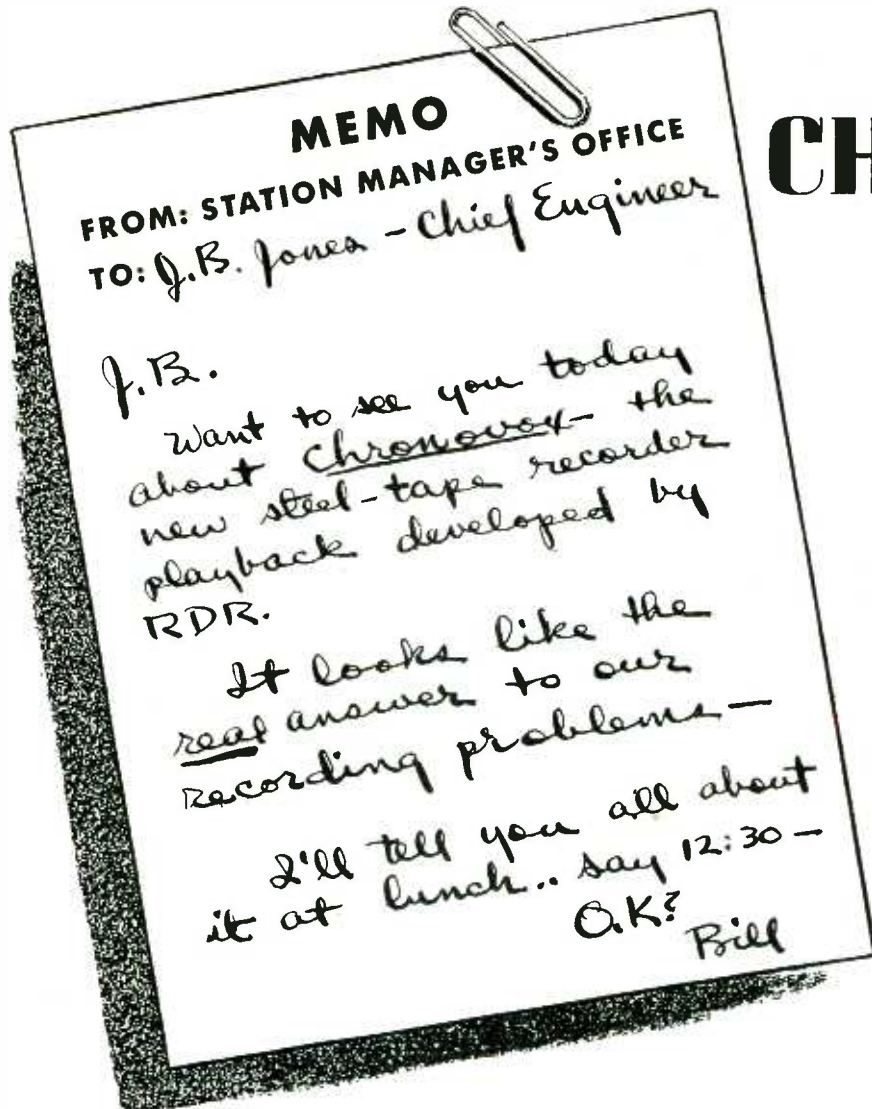 MEMO
FROM: STATION MANAGER'S OFFICE
TO: J.B. Jones - Chief Engineer
CH
J.B.
Want to see you today
about Chronovox - the
new steel-tape recorder
playback developed by
RDR.
It looks like the
real answer to our
recording problems —
I'll tell you all about
it at lunch.. say 12:30 —
O.K?
Bill